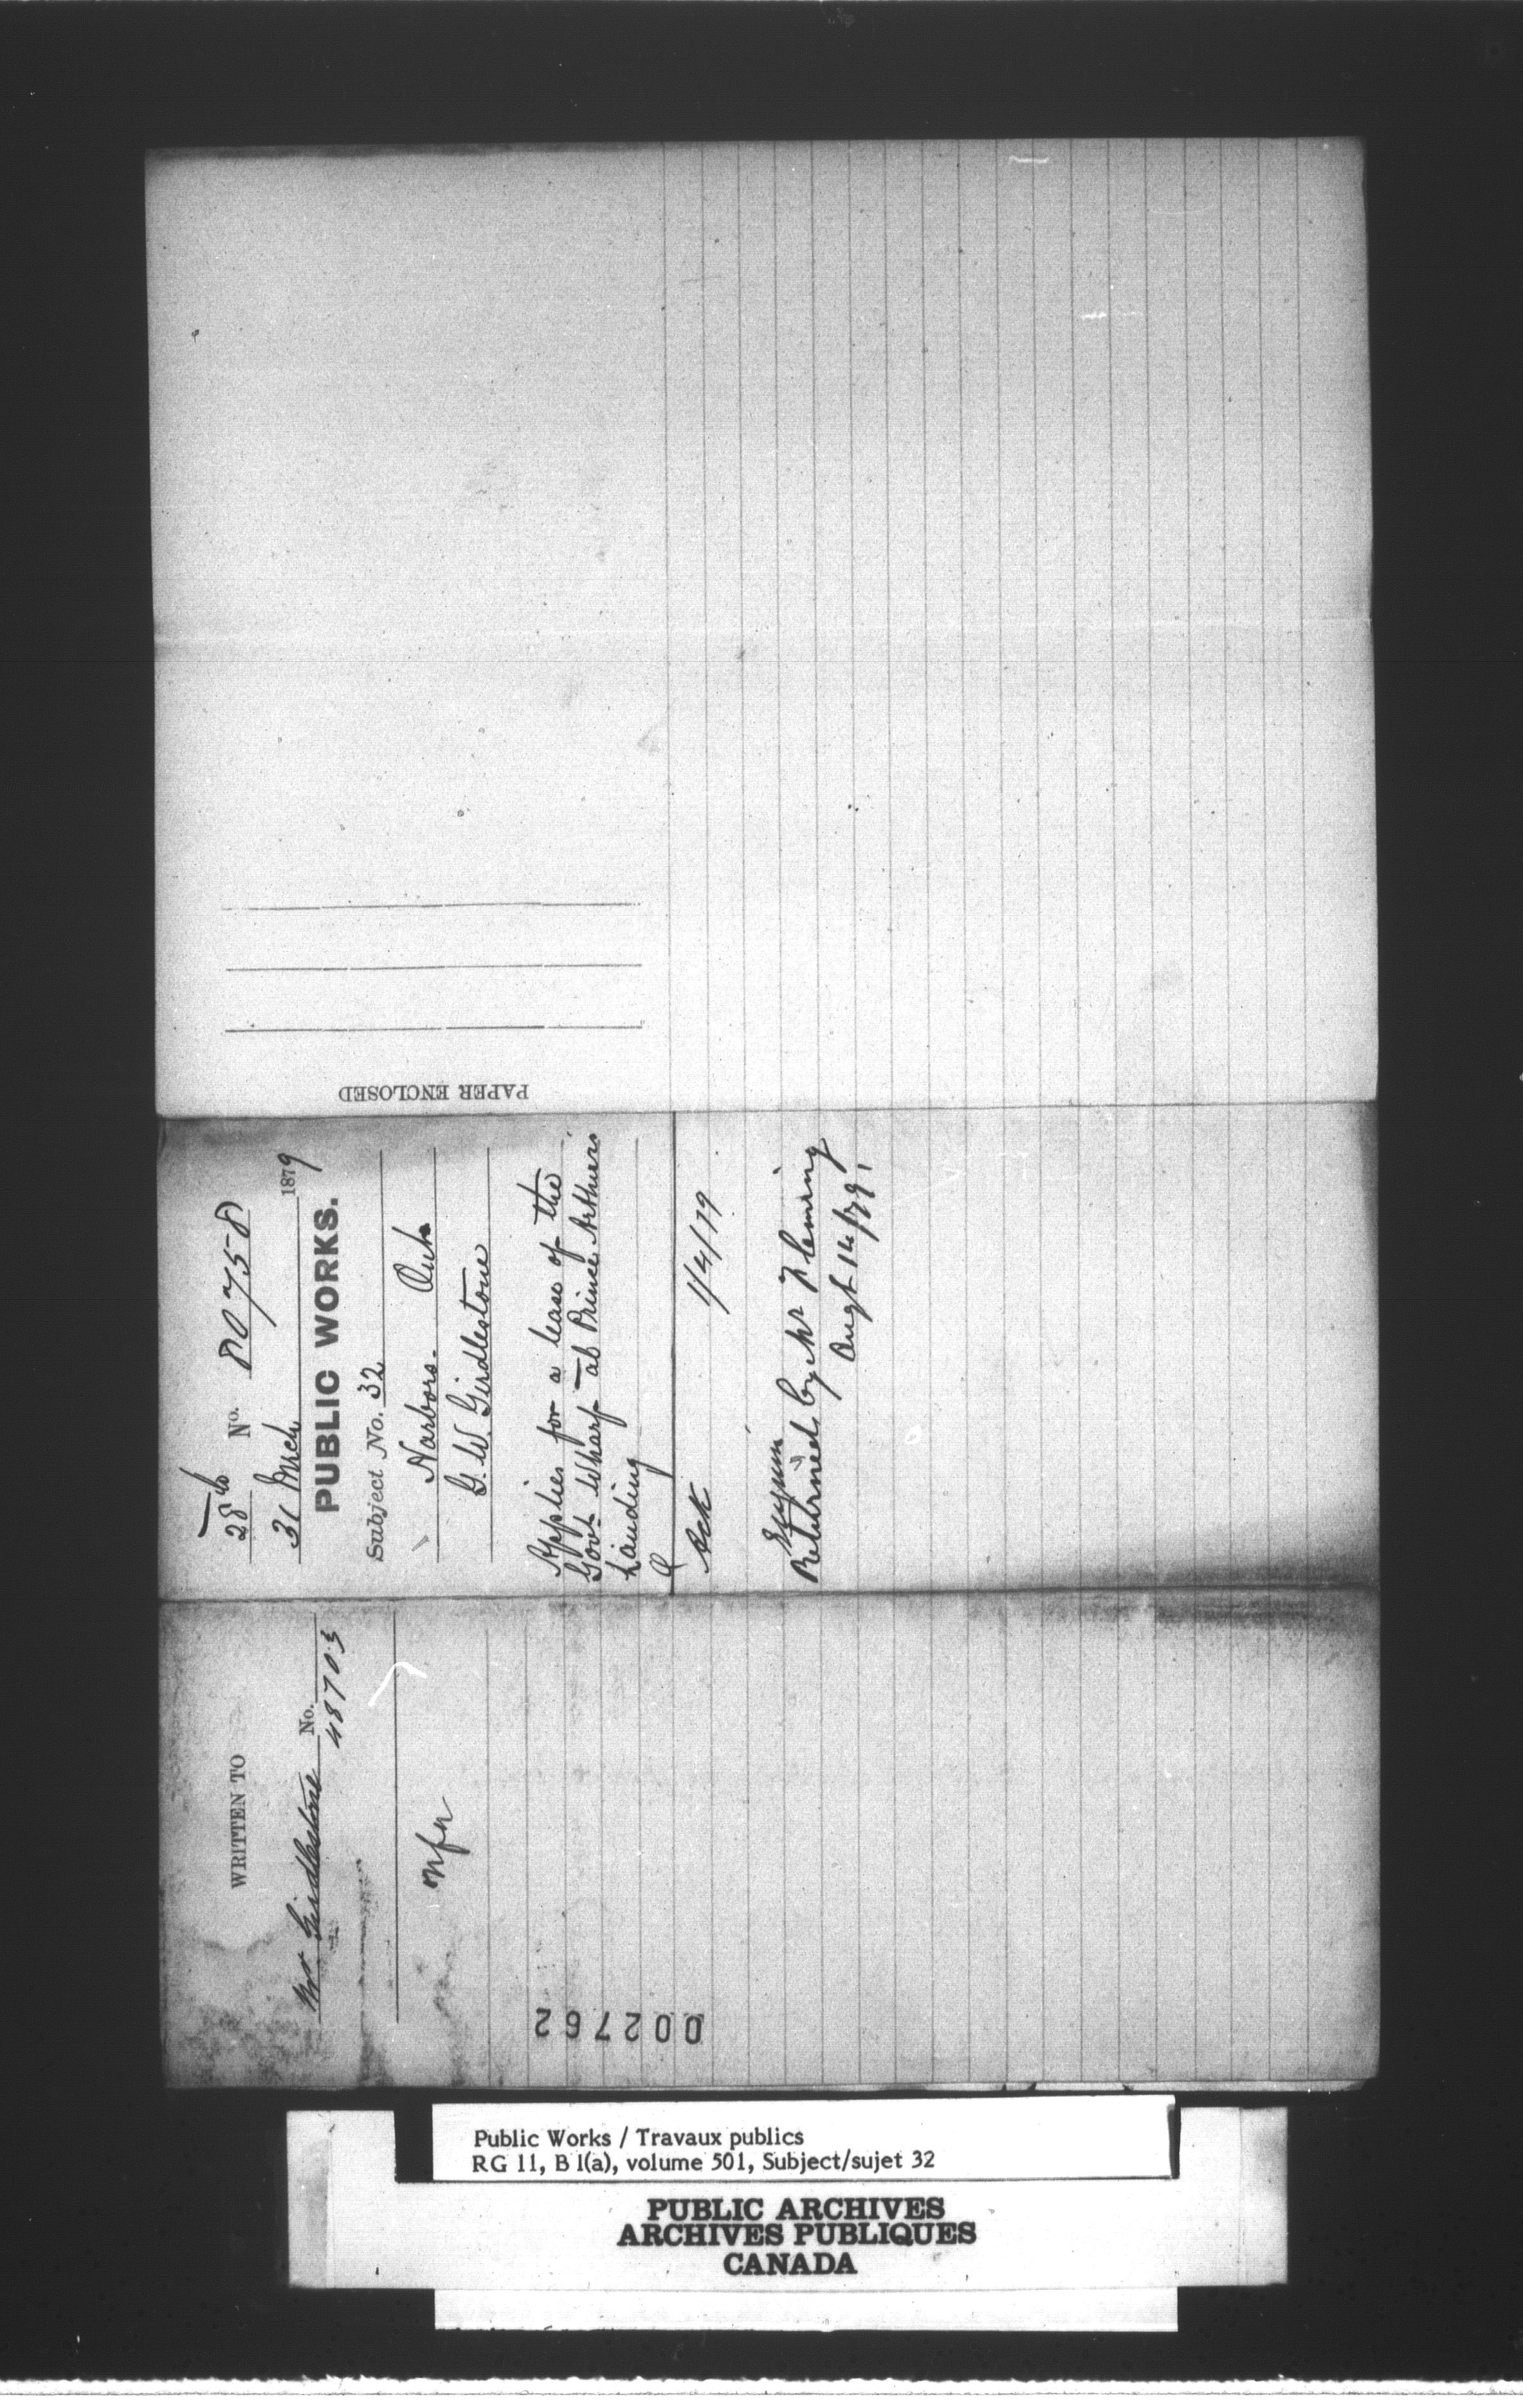 28th No. 80758
31 Mrch 1879
PUBLIC WORKS.
Subject No. 32
Harbors - Ont.
G. W. Girdlestone
Applies for a lease of the
Govt Wharf at Prince Arthurs
Landing
Ack 1/4/79
Returned by Mr Fleming
Augt 14/79
PAPER ENCLOSED
WRITTEN TO
Mr Girdlestone No.
48703
002762
Public Works / Travaux publics
RG 11, B 1(a), volume 501, Subject/sujet 32
PUBLIC ARCHIVES
ARCHIVES PUBLIQUES
CANADA